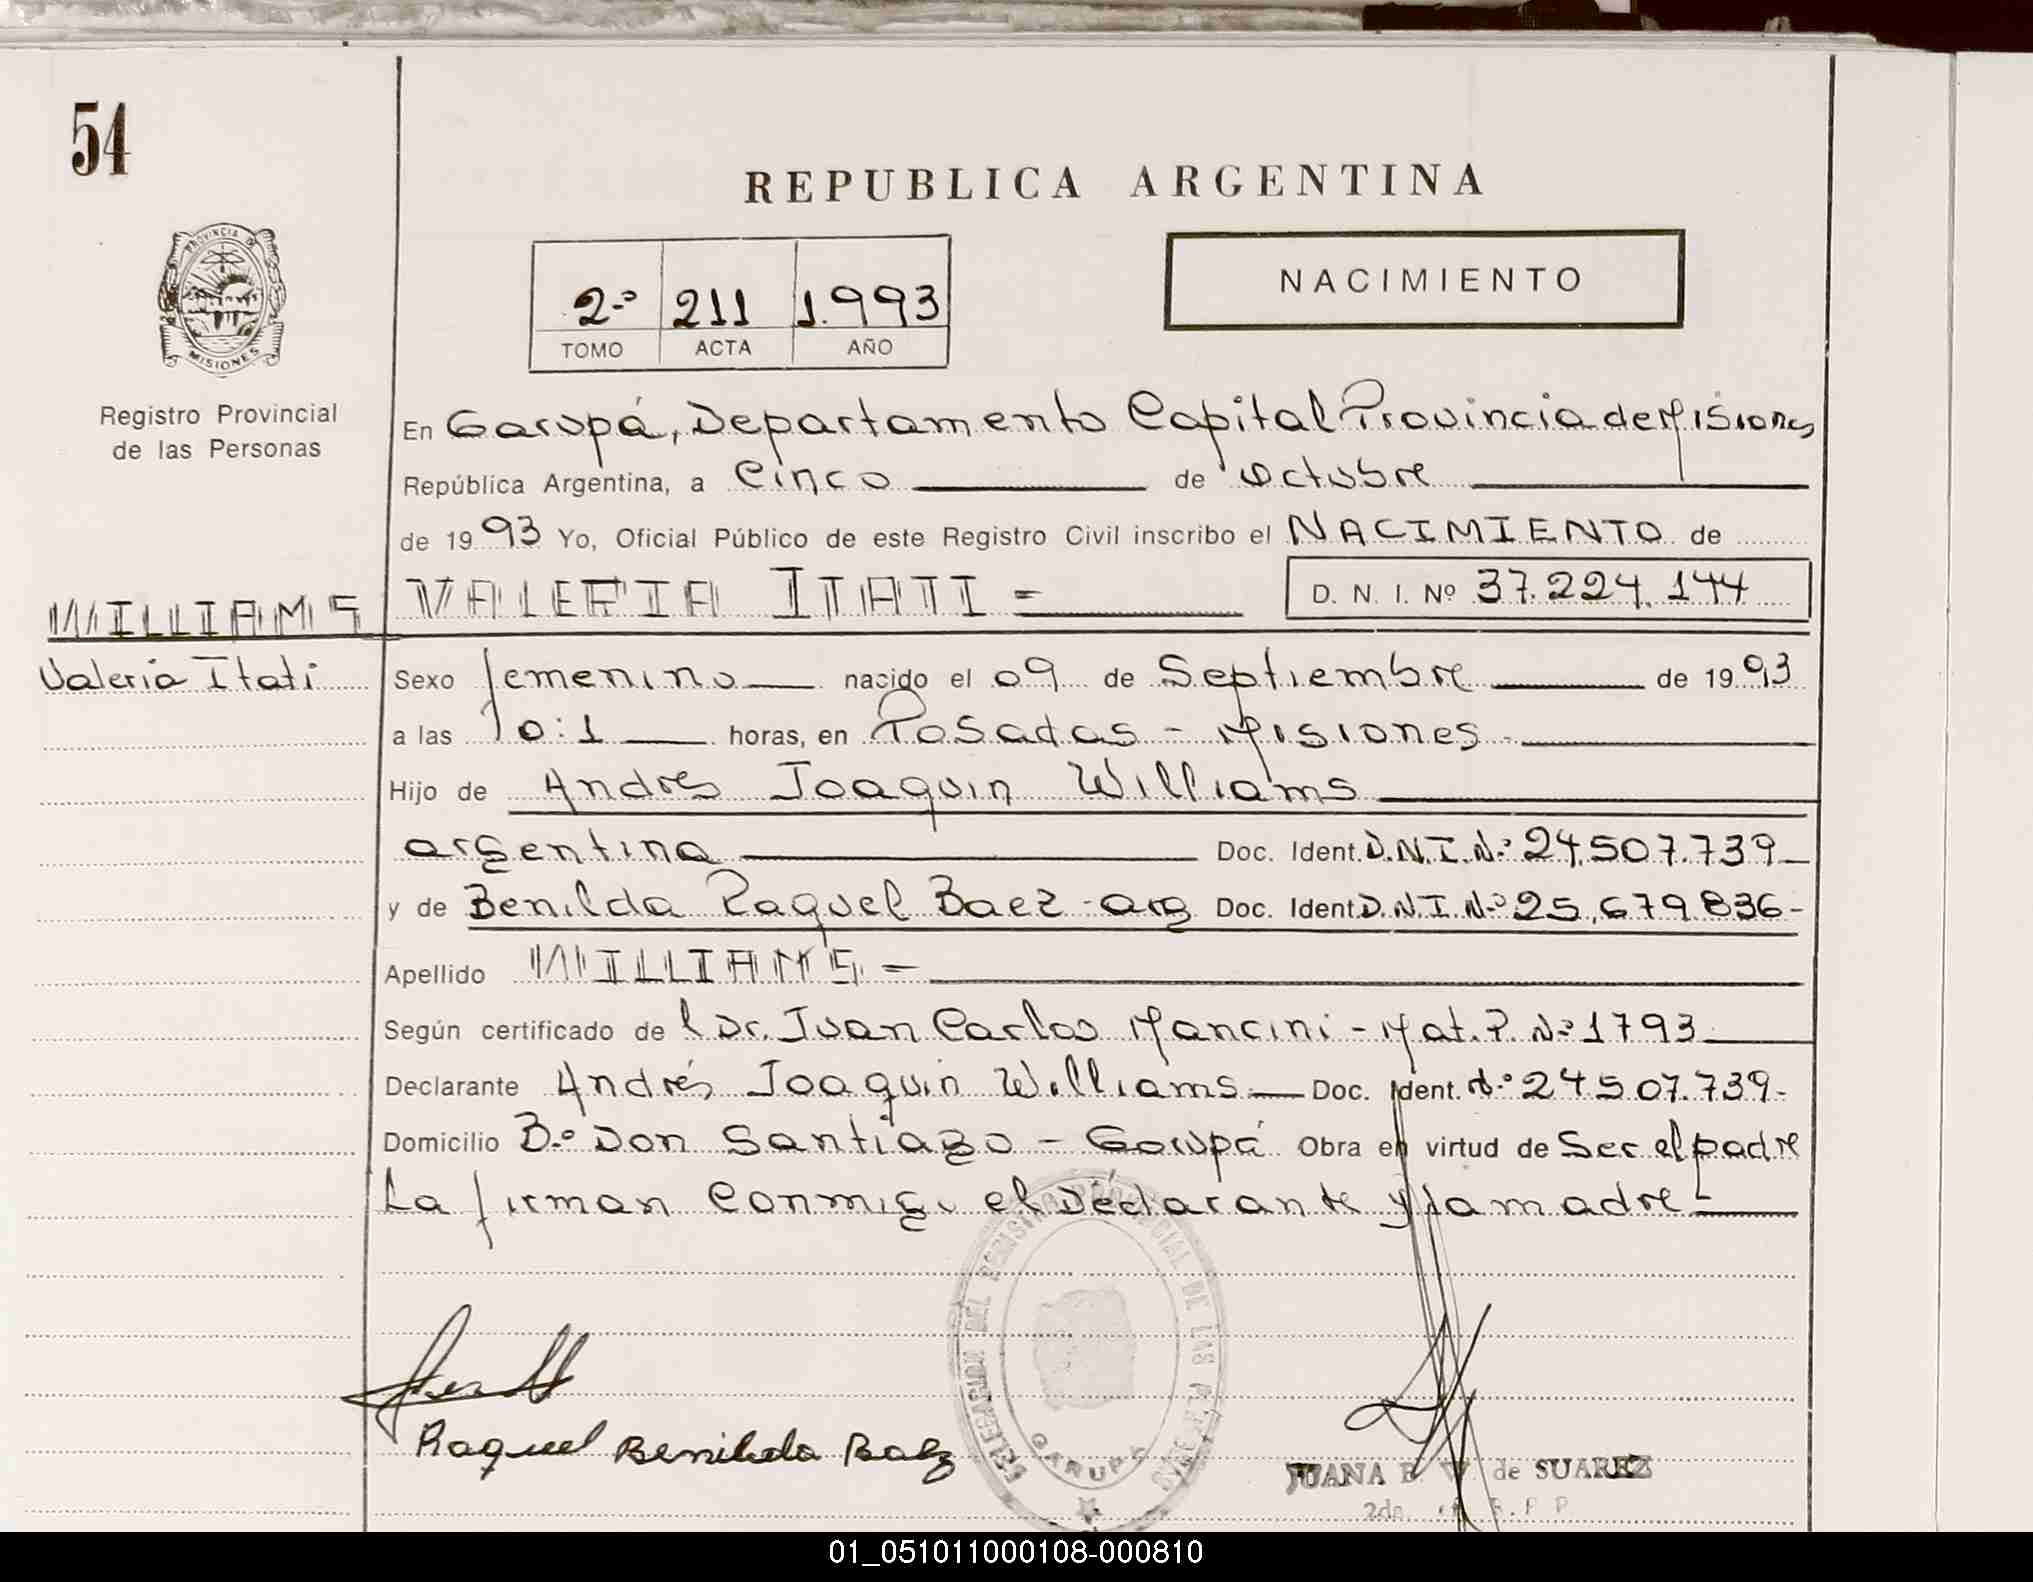 54
REPUBLICA ARGENTINA
PROVINCIA DE
MISIONES
Registro Provincial
de las Personas
2º 211 1.993
TOMO ACTA AÑO
NACIMIENTO
En Garupá, Departamento Capital Provincia de Misiones
República Argentina, a Cinco de Octubre
de 1993 Yo, Oficial Público de este Registro Civil inscribo el NACIMIENTO de
WILLIAMS VALERIA ITATI =
D. N. I. Nº 37.224.144
Valeria Itati
Sexo femenino nacido el 09 de Septiembre de 1993
a las 10:1 horas, en Posadas - Misiones -
Hijo de Andres Joaquin Williams
argentina Doc. Ident. D.N.I. Nº 24.507.739
y de Benilda Raquel Baez - arg Doc. Ident. D.N.I. Nº 25.679.836-
Apellido WILLIAMS =
Según certificado del Dr. Juan Carlos Mancini - Mat. P. Nº 1793
Declarante Andrés Joaquin Williams Doc. Ident. Nº 24507.739-
Domicilio Bº Don Santiago - Garupá Obra en virtud de Ser el padre
La firman Conmigo el Declarante y la madre
DELEGACION DEL REGISTRO PROVINCIAL DE LAS PERSONAS
GARUPA
Raquel Benilda Baez
JUANA E de SUAREZ
01_051011000108-000810